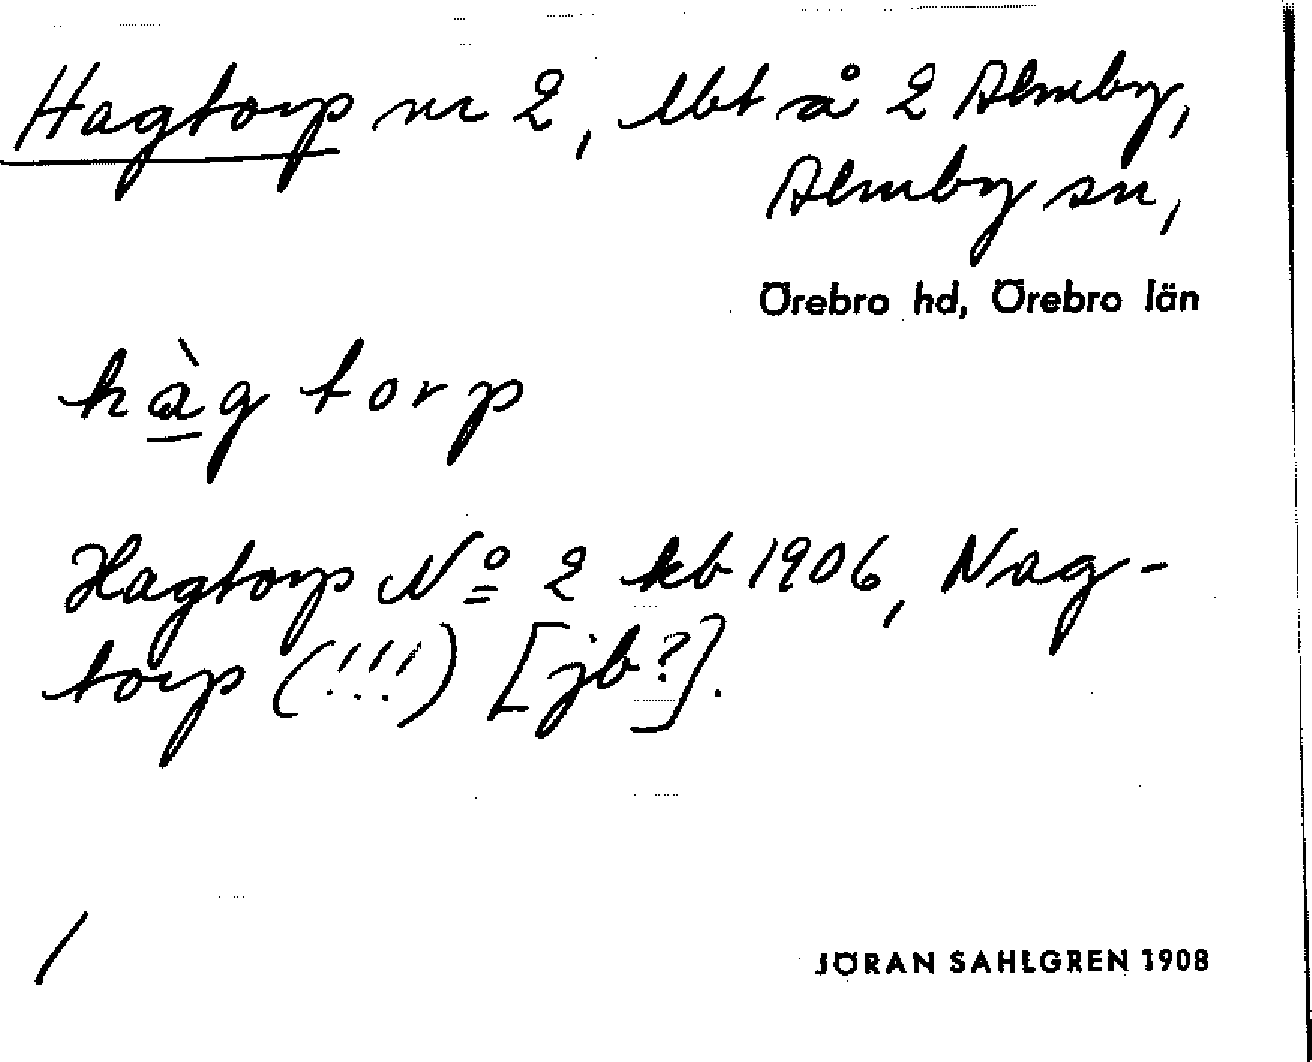 Hagtorp nr 2, lbt å 2 Almby,
Almby sn,
Örebro hd, Örebro län
hàg torp
Hagtorp Nº 2 kb 1906, Nag-
torp (!!!) [jb?].
/
JÖRAN SAHLGREN 1908